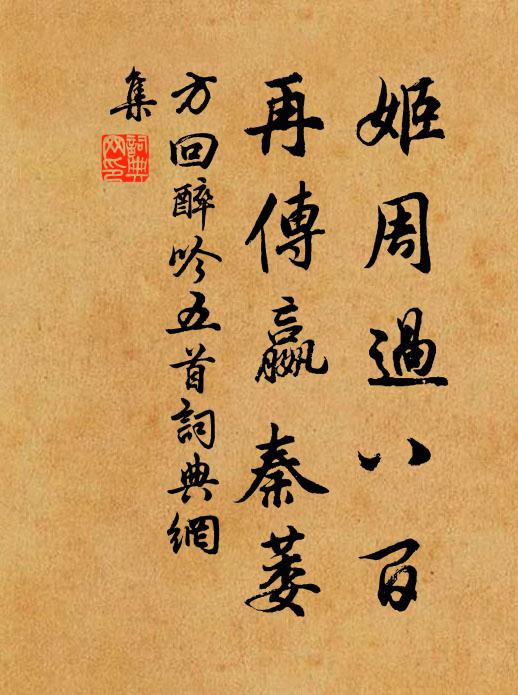 姬周過八百
再傳嬴秦萎
方回醉吟五首詞典網
集
詞典
网印